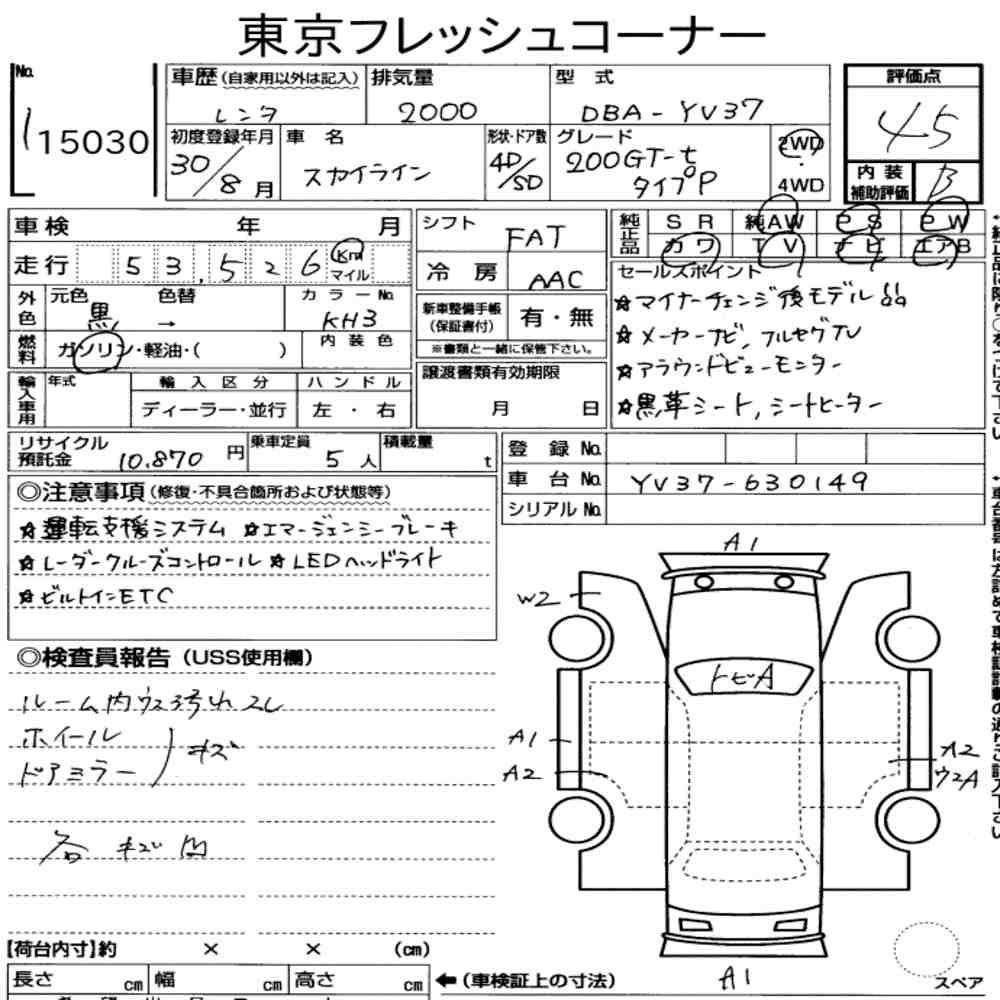 東京フレッシュコーナー
No. 15030
車歴(自家用以外は記入) レンタ
排気量 2000
型式 DBA-YV37
評価点 4.5
初度登録年月 30/8月
車名 スカイライン
形状・ドア数 4D/SD
グレード 200GT-t タイプP
2WD・4WD
内装補助評価 B
車検 年 月
走行 53,526 Km マイル
シフト FAT
冷房 AAC
純正品 SR 純AW PS PW
カワ TV ナビ エアB
外色 元色 黒 色替 → カラーNo. KH3
燃料 ガソリン・軽油・( ) 内装色
新車整備手帳(保証書付) 有・無
※書類と一緒に保管下さい。
セールスポイント
☆マイナーチェンジ後モデル
☆メーカーナビ,フルセグTV
☆アラウンドビューモニター
☆黒革シート,シートヒーター
輸入車用 年式 輸入区分 ハンドル
ディーラー・並行 左・右
譲渡書類有効期限
月 日
リサイクル預託金 10.870円 乗車定員 5人 積載量 t
登録No.
車台No. YV37-630149
シリアルNo.
◎注意事項(修復・不具合箇所および状態等)
☆運転支援システム ☆エマージェンシーブレーキ
☆レーダークルーズコントロール ☆LEDヘッドライト
☆ビルトインETC
◎検査員報告(USS使用欄)
ルーム内ウス
ホイール
ドアミラー キズ
各 キズ 凹
A1
W2
トビA
A1
A2
A2
ウスA
A1
スペア
【荷台内寸】約 × × (cm)
長さ cm 幅 cm 高さ cm
←(車検証上の寸法)